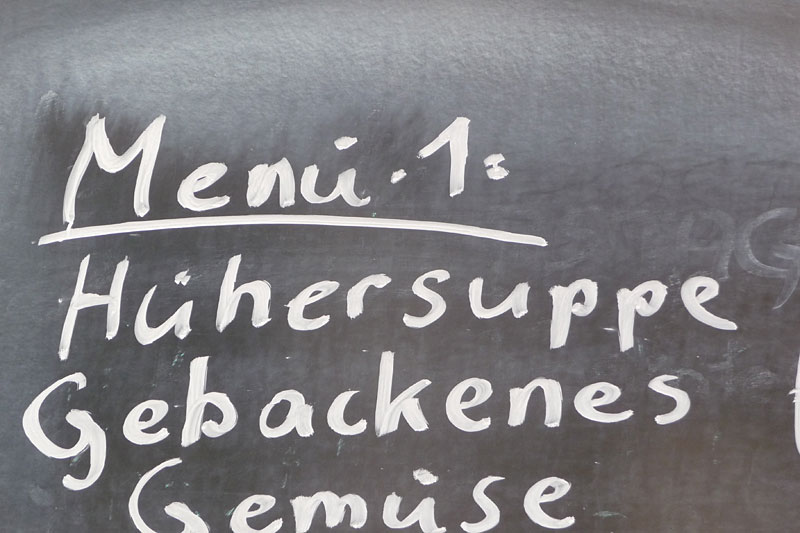 Menü.1:
Hühersuppe
Gebackenes
Gemüse